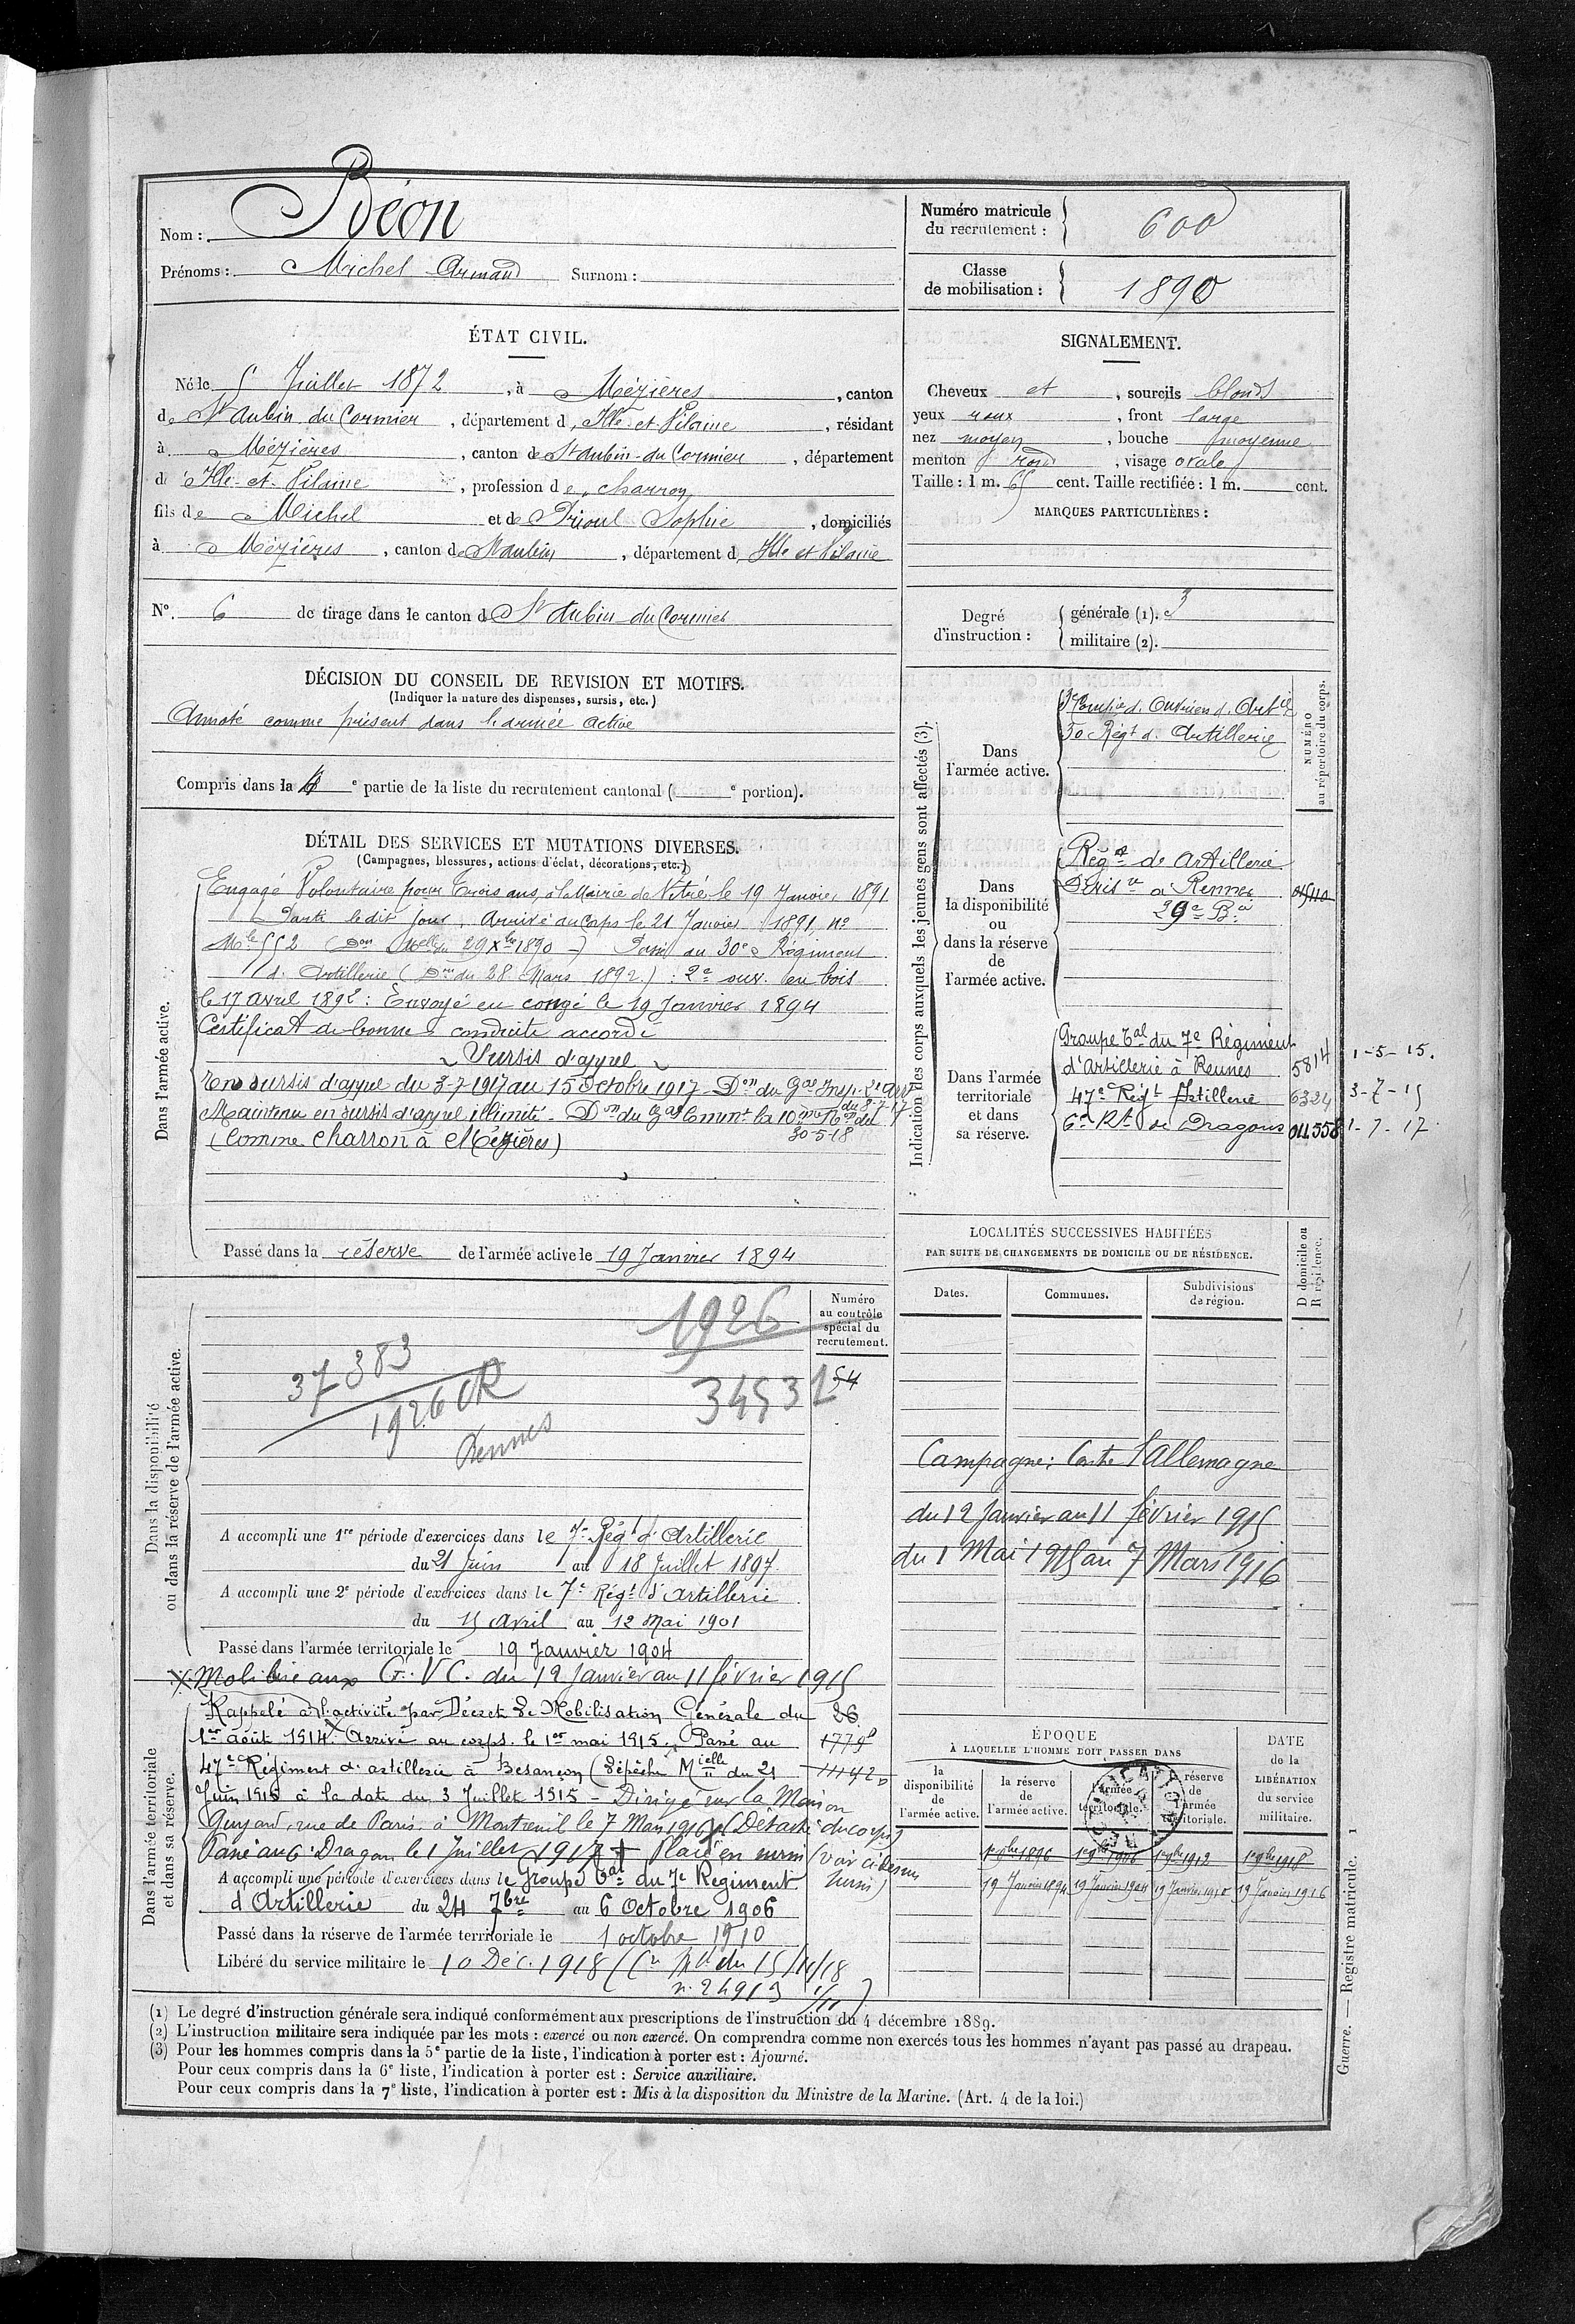 Nom : Béon
Prénoms : Michel Armand Surnom :
Numéro matricule du recrutement : 600
Classe de mobilisation : 1890
ÉTAT CIVIL.
Né le 5 Juillet 1872, à Mézières, canton
de St Aubin du Cormier, département d'Ille et Vilaine, résidant
à Mézières, canton de St Aubin-du Cormier, département
d'Ille-et-Vilaine, profession de charron
fils de Michel et de Prioul Sophie, domiciliés
à Mézières, canton de St Aubin, département d'Ille et Vilaine
No. 6 de tirage dans le canton de St Aubin du Cormier
SIGNALEMENT.
Cheveux et, sourcils blonds
yeux roux, front large
nez moyen, bouche moyenne
menton rond, visage ovale
Taille : 1 m. 65 cent. Taille rectifiée : 1 m. cent.
MARQUES PARTICULIÈRES :
Degré d'instruction : générale (1). 3
militaire (2).
DÉCISION DU CONSEIL DE REVISION ET MOTIFS.
(Indiquer la nature des dispenses, sursis, etc.)
Annoté comme présent dans l'armée active
Compris dans la 4e partie de la liste du recrutement cantonal ( e portion).
DÉTAIL DES SERVICES ET MUTATIONS DIVERSES.
(Campagnes, blessures, actions d'éclat, décorations, etc.)
Dans l'armée active.
Engagé Volontaire pour Trois ans, à la Mairie de Vitré le 19 Janvier 1891
Parti ledit jour, Arrivé au Corps le 21 Janvier 1891, no
Mle 552 (Don Melle du 29 Xbre 1890) Passé au 30e Régiment
d'Artillerie (Don du 28 Mars 1892) : 2e ouv. en bois
le 17 avril 1892 : Envoyé en congé le 19 Janvier 1894
Certificat de bonne conduite accordé
Sursis d'appel
En sursis d'appel du 3-7-1917 au 15 Octobre 1917 - Don du Gal Insp.
du 8-7-17
Maintenu en sursis d'appel illimité - Don du Gal Commt la 10eme Ron du
30-5-18
(Comme Charron à Mézières)
Passé dans la réserve de l'armée active le 19 Janvier 1894
Indication des corps auxquels les jeunes gens sont affectés (3).
NUMÉRO au répertoire du corps.
Dans l'armée active.
3e Compie d'Ouvriers d'Artie
30 Régt d'Artillerie
Dans la disponibilité ou dans la réserve de l'armée active.
Régt d'Artillerie
à Rennes
29e Bie
Dans l'armée territoriale et dans sa réserve.
Groupe Tal du 7e Régiment
d'Artillerie à Rennes 5814 1-5-15.
47e Régt Artillerie 6324 3-7-15
6e Rt de Dragons 011558 1-7-17
LOCALITÉS SUCCESSIVES HABITÉES
PAR SUITE DE CHANGEMENTS DE DOMICILE OU DE RÉSIDENCE.
Dates. Communes. Subdivisions de région. D domicile ou R résidence.
Campagne : Contre l'Allemagne
du 12 Janvier au 11 février 1915
du 1 Mai 1915 au 7 Mars 1916
Dans la disponibilité ou dans la réserve de l'armée active.
Numéro au contrôle spécial du recrutement.
1926
37383
1926 CR
Rennes
34531
54
A accompli une 1re période d'exercices dans le 7e Régt d'Artillerie
du 21 Juin au 18 Juillet 1897
A accompli une 2e période d'exercices dans le 7e Régt d'Artillerie
du 15 Avril au 12 Mai 1901
Passé dans l'armée territoriale le 19 Janvier 1904
Mobilisé aux G.V.C. du 12 Janvier au 11 février 1915
Dans l'armée territoriale et dans sa réserve.
Rappelé à l'activité par Décret de Mobilisation Générale du 26
1er août 1914. Arrivé au corps le 1er mai 1915. Passé au
47e Régiment d'artillerie à Besançon (dépêche Mielle du 21
Juin 1915 à la date du 3 Juillet 1915 - Dirigé sur la Maison
Guyard, rue de Paris, à Montreuil le 7 Mars 1916 (Détaché du corps)
Passé au 6e Dragons le 1 Juillet 1917 + Placé en sursis (voir ci dessus
sursis)
A accompli une période d'exercices dans le Groupe Tal du 7e Régiment
d'Artillerie du 24 7bre au 6 Octobre 1906
Passé dans la réserve de l'armée territoriale le 1 octobre 1910
Libéré du service militaire le 10 Déc. 1918 (
ÉPOQUE
À LAQUELLE L'HOMME DOIT PASSER DANS
la disponibilité de l'armée active.
la réserve de l'armée active.
l'armée territoriale.
la réserve de l'armée territoriale.
DATE de la LIBÉRATION du service militaire.
19 Janvier 1894 19 Janvier 1904 19 Janvier 1910 19 Janvier 1916
(1) Le degré d'instruction générale sera indiqué conformément aux prescriptions de l'instruction du 4 décembre 1889.
(2) L'instruction militaire sera indiquée par les mots : exercé ou non exercé. On comprendra comme non exercés tous les hommes n'ayant pas passé au drapeau.
(3) Pour les hommes compris dans la 5e partie de la liste, l'indication à porter est : Ajourné.
Pour ceux compris dans la 6e liste, l'indication à porter est : Service auxiliaire.
Pour ceux compris dans la 7e liste, l'indication à porter est : Mis à la disposition du Ministre de la Marine. (Art. 4 de la loi.)
Guerre. — Registre matricule. 1